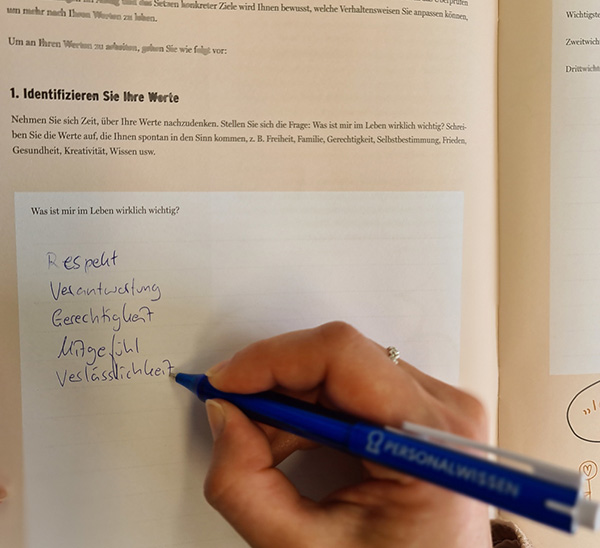 und das Setzen konkreter Ziele wird Ihnen bewusst, welche Verhaltensweisen Sie anpassen können,
um mehr nach Ihren Werten zu leben.
Um an Ihren Werten zu arbeiten, gehen Sie wie folgt vor:
1. Identifizieren Sie Ihre Werte
Nehmen Sie sich Zeit, über Ihre Werte nachzudenken. Stellen Sie sich die Frage: Was ist mir im Leben wirklich wichtig? Schrei-
ben Sie die Werte auf, die Ihnen spontan in den Sinn kommen, z. B. Freiheit, Familie, Gerechtigkeit, Selbstbestimmung, Frieden,
Gesundheit, Kreativität, Wissen usw.
Was ist mir im Leben wirklich wichtig?
Respekt
Verantwortung
Gerechtigkeit
Mitgefühl
Verlässlichkeit
PERSONALWISSEN
Wichtigste
Zweitwich
Drittwich